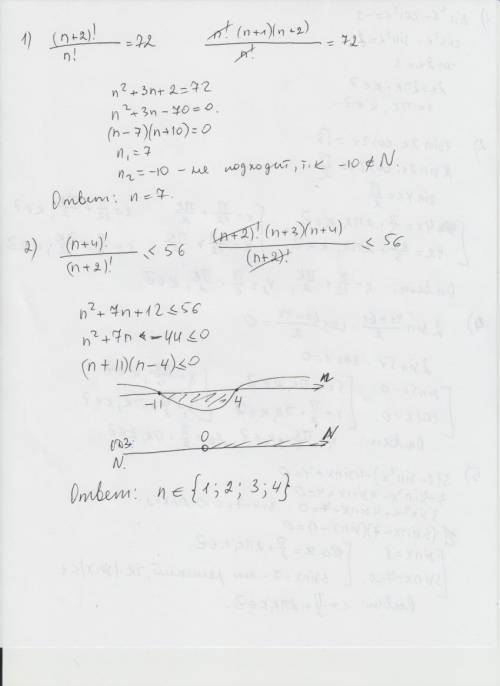 1) (n+2)!/n! = 72   n!(n+1)(n+2)/n! = 72
n²+3n+2=72
n²+3n-70=0.
(n-7)(n+10)=0
n₁=7
n₂=-10 - не подходит, т.к -10 ∉ N.
Ответ: n=7.
2) (n+4)!/(n+2)! ≤ 56   (n+2)!(n+3)(n+4)/(n+2)! ≤ 56
n²+7n+12≤56
n²+7n-44≤0
(n+11)(n-4)≤0
-11 4 n
ОДЗ: 0 N
N.
Ответ: n ∈ {1; 2; 3; 4}